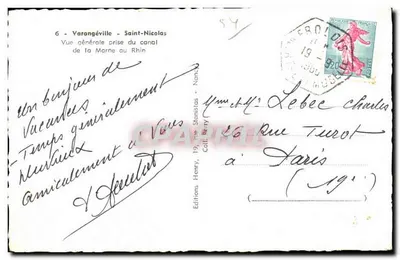 6 - Varangéville - Saint-Nicolas
Vue générale prise du canal
de la Marne au Rhin
54
Un bonjour de
Vacances
- Temps généralement
pluvieux
Amicalement à Vous
Editions Henry, 19, Stanislas - Nancy
Coll. Remy
Mme et Mr Lebec Charles
26 Rue Turot
à
Paris
(19e)